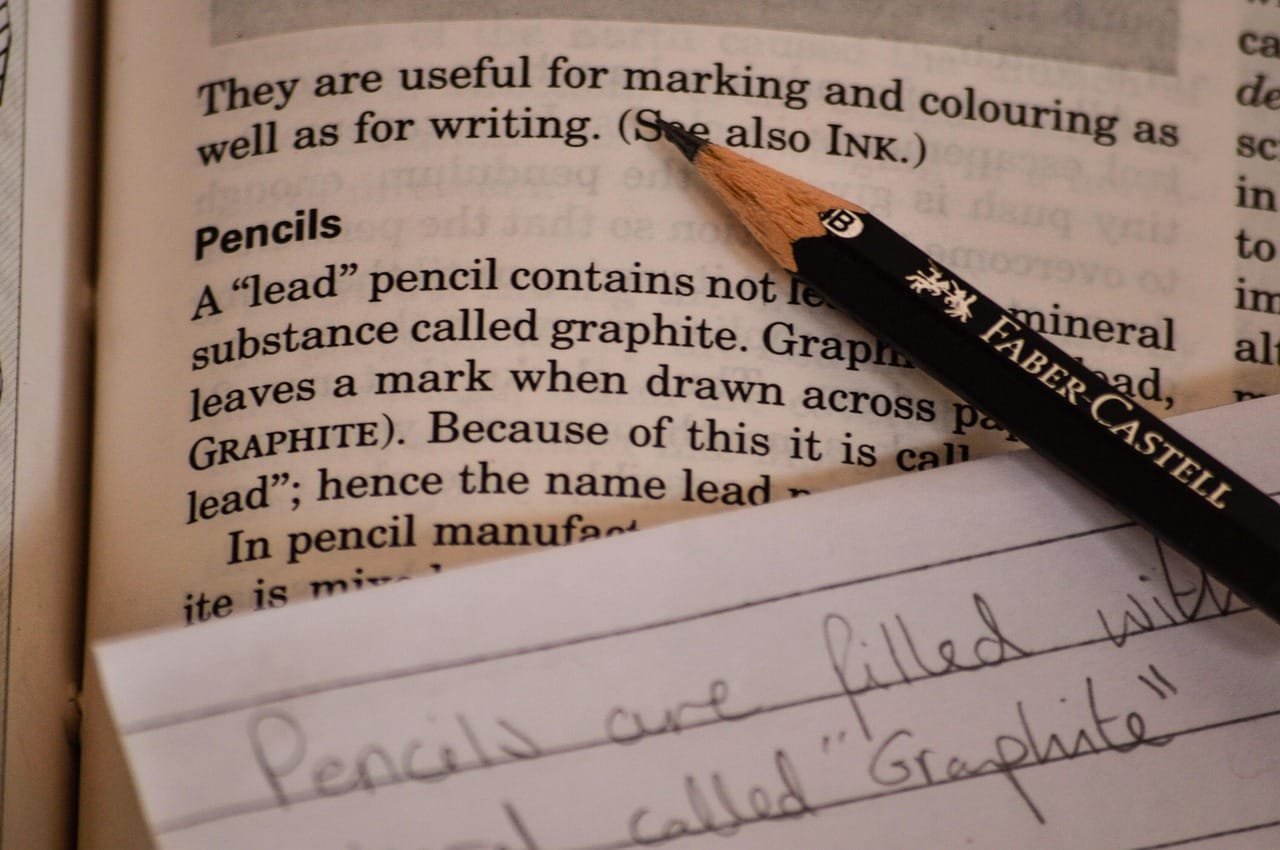 They are useful for marking and colouring as
well as for writing. (See also INK.)
Pencils
A "lead" pencil contains not mineral
substance called graphite.
leaves a mark when drawn across
GRAPHITE). Because of this it is
lead"; hence the name lead
In pencil
ite is
B
FABER-CASTELL
Pencils are filled with
called "Graphite"
ca
de
sc
in
to
im
alt